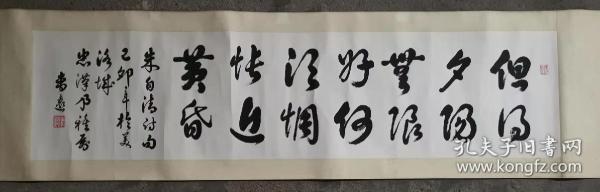 但得
夕阳
无限
好何
须惆
怅近
黄昏
朱自清诗句
己卯年于美
洛城
孔夫子旧书网
www.kongfz.com